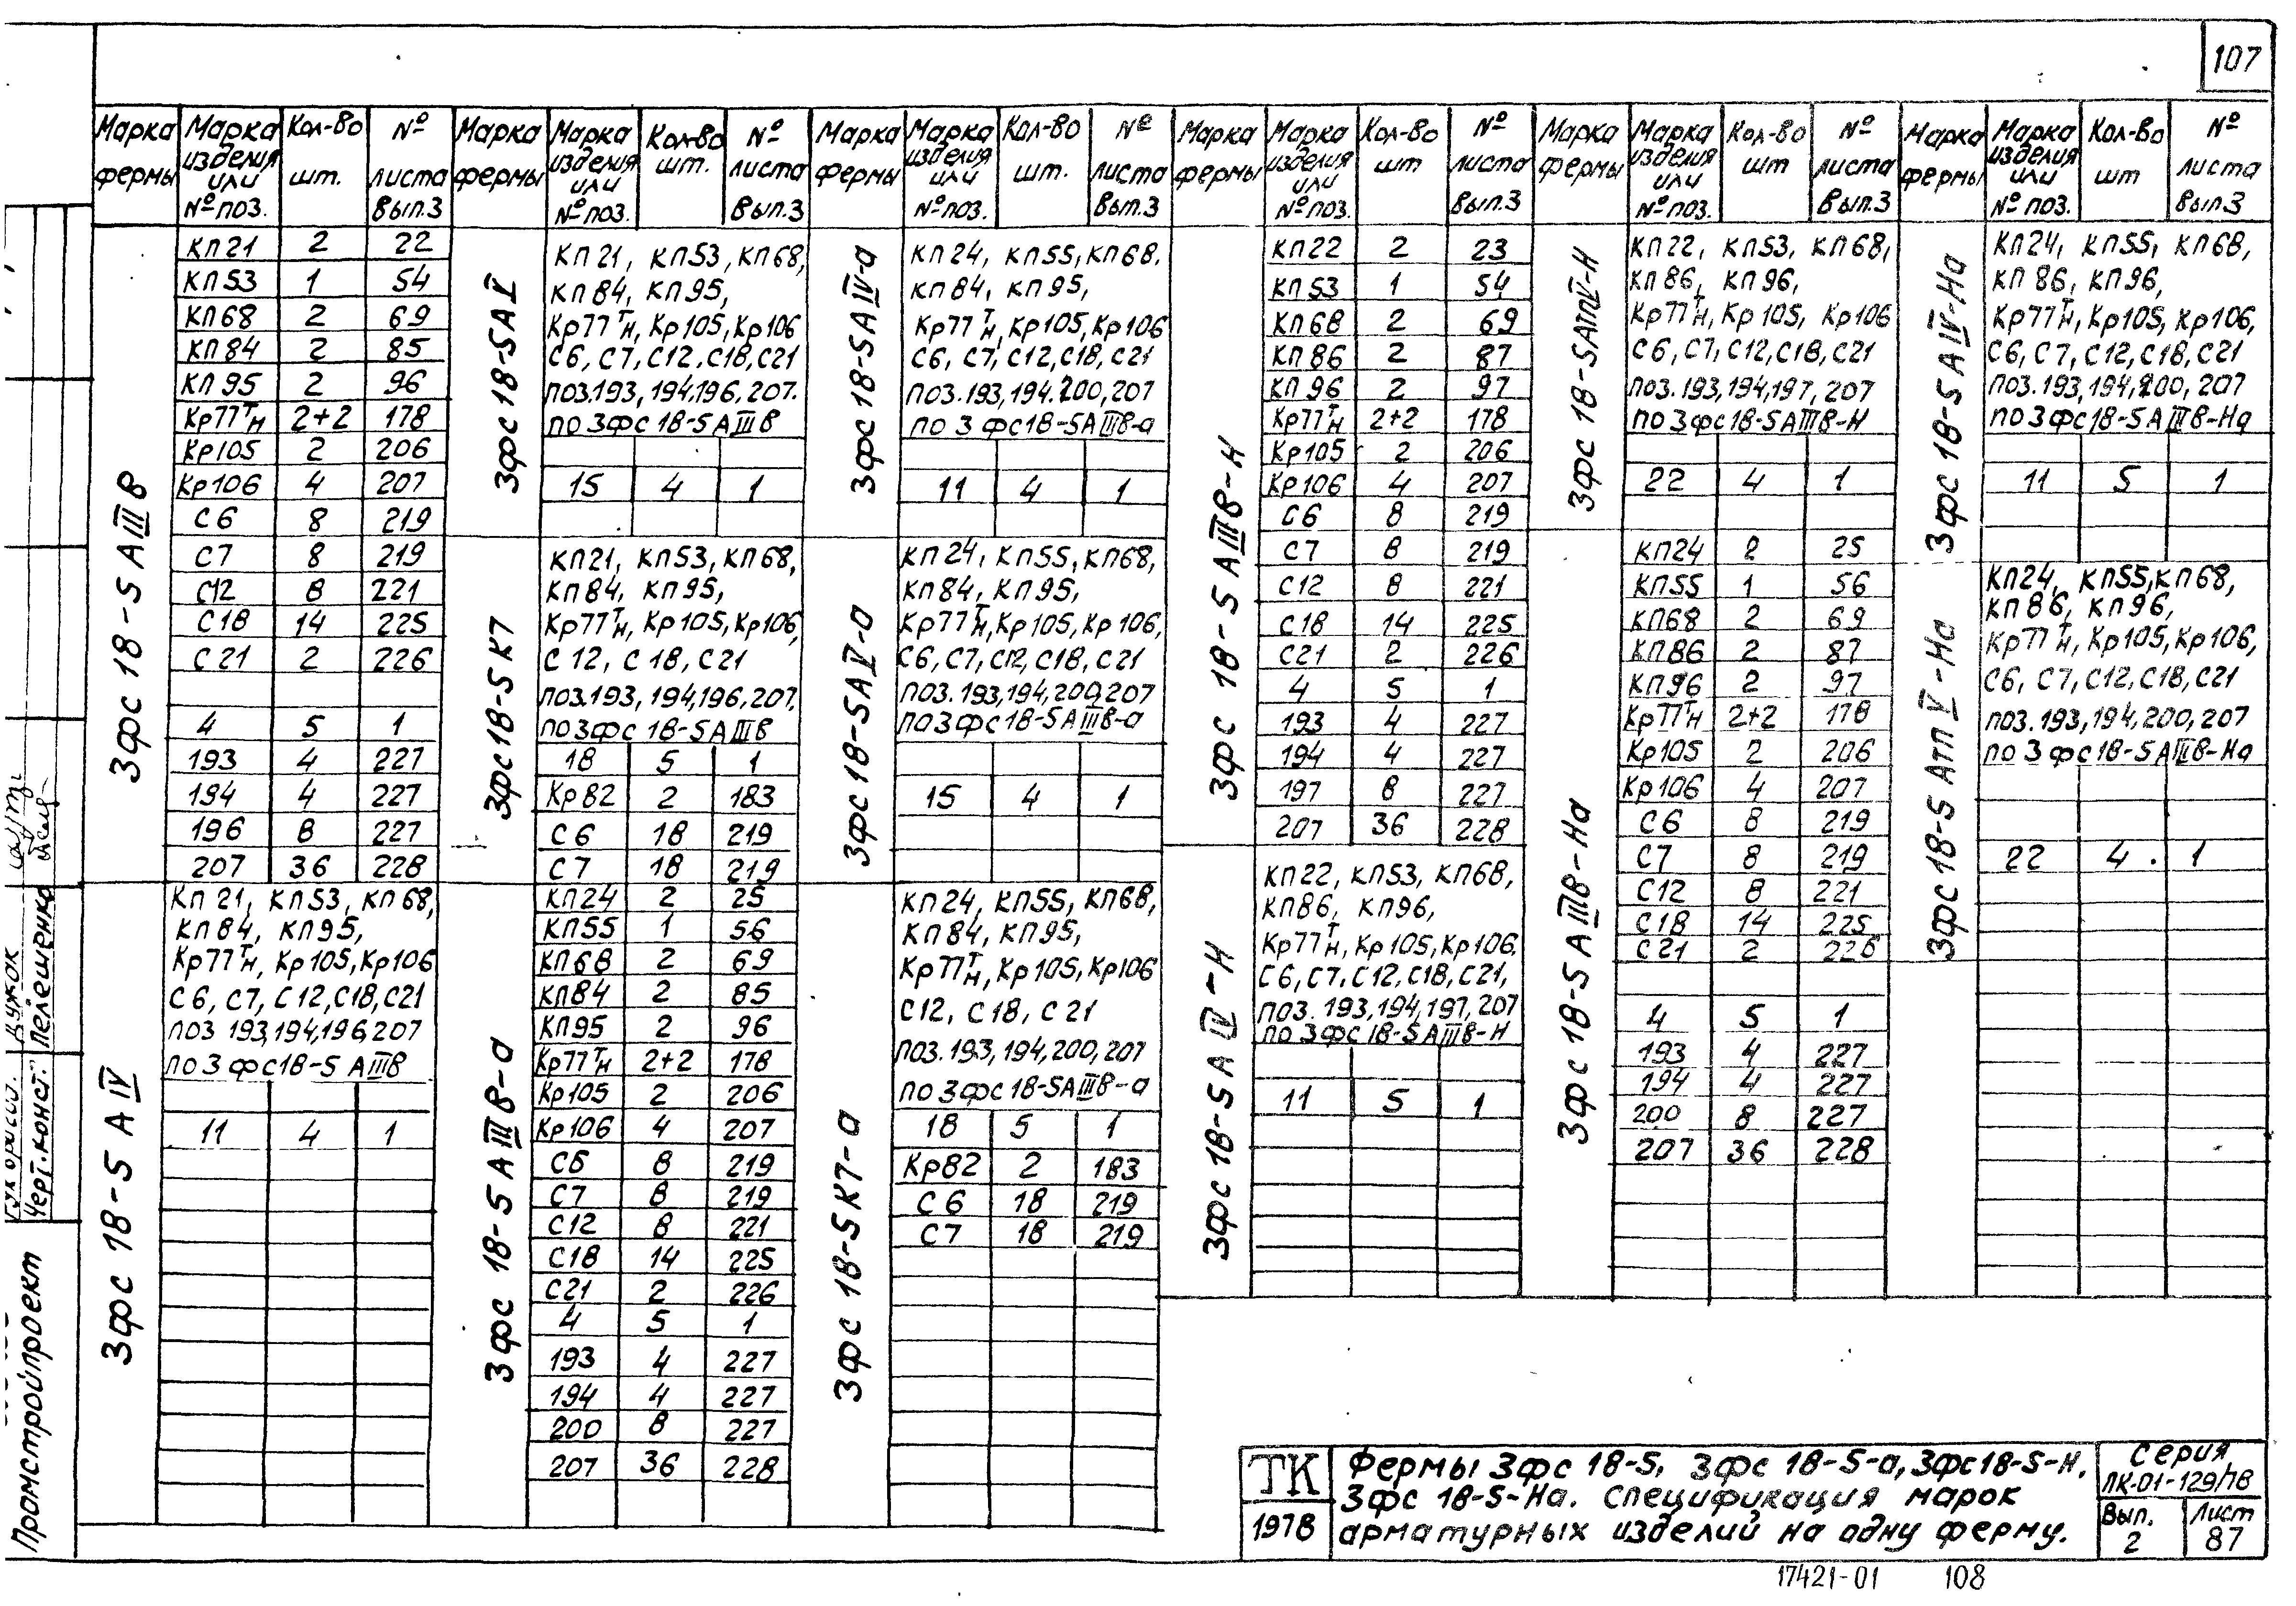 107
Марка фермы | Марка изделия или № поз. | Кол-во шт. | № листа Вып.3
3фс 18-5 АIIIв
КП21 2 22
КП53 1 54
КП68 2 69
КП84 2 85
КП95 2 96
Кр77Тн 2+2 178
Кр105 2 206
Кр106 4 207
С6 8 219
С7 8 219
С12 8 221
С18 14 225
С21 2 226
4 5 1
193 4 227
194 4 227
196 8 227
207 36 228
3фс 18-5 АIV
КП 21, КП53, КП 68,
КП84, КП95,
Кр77Тн, Кр105, Кр106
С6, С7, С12, С18, С21
поз 193, 194, 196, 207
по 3фс18-5 АIIIв
11 4 1
Марка фермы | Марка изделия или № поз. | Кол-во шт. | № листа Вып.3
3фс 18-5АV
КП21, КП53, КП68,
КП84, КП95,
Кр77Тн, Кр105, Кр106
С6, С7, С12, С18, С21
поз.193, 194, 196, 207.
по 3фс 18-5 АIIIв
15 4 1
3фс18-5К7
КП21, КП53, КП68,
КП84, КП95,
Кр77Тн, Кр105, Кр106,
С12, С18, С21
поз.193, 194, 196, 207,
по 3фс 18-5 АIIIв
18 5 1
Кр82 2 183
С6 18 219
С7 18 219
3фс 18-5 АIIIв-а
КП24 2 25
КП55 1 56
КП68 2 69
КП84 2 85
КП95 2 96
Кр77Тн 2+2 178
Кр105 2 206
Кр106 4 207
С6 8 219
С7 8 219
С12 8 221
С18 14 225
С21 2 226
4 5 1
193 4 227
194 4 227
200 8 227
207 36 228
Марка фермы | Марка изделия или № поз. | Кол-во шт. | № листа Вып.3
3фс 18-5АIV-а
КП24, КП55, КП68.
КП84, КП95,
Кр77Тн, Кр105, Кр106
С6, С7, С12, С18, С21
поз.193, 194. 200, 207
по 3фс18-5АIIIв-а
11 4 1
3фс 18-5АV-а
КП24, КП55, КП68,
КП84, КП95,
Кр77Тн, Кр105, Кр106,
С6, С7, С12, С18, С21
поз.193, 194, 200, 207
по 3фс18-5АIIIв-а
15 4 1
3фс 18-5К7-а
КП24, КП55, КП68,
КП84, КП95,
Кр77Тн, Кр105, Кр106
С12, С18, С21
поз.193, 194, 200, 207
по 3фс 18-5АIIIв-а
18 5 1
Кр82 2 183
С6 18 219
С7 18 219
Марка фермы | Марка изделия или № поз. | Кол-во шт | № листа Вып.3
3фс 18-5 АIIIв-н
КП22 2 23
КП53 1 54
КП68 2 69
КП86 2 87
КП96 2 97
Кр77Тн 2+2 178
Кр105 2 206
Кр106 4 207
С6 8 219
С7 8 219
С12 8 221
С18 14 225
С21 2 226
4 5 1
193 4 227
194 4 227
197 8 227
207 36 228
3фс 18-5АIV-н
КП22, КП53, КП68,
КП86, КП96,
Кр77Тн, Кр105, Кр106.
С6, С7, С12, С18, С21,
поз. 193, 194, 197, 207
по 3фс 18-5 АIIIв-н
11 5 1
Марка фермы | Марка изделия или № поз. | Кол-во шт | № листа Вып.3
3фс 18-5АтпV-н
КП22, КП53, КП68,
КП86, КП96,
Кр77Тн, Кр105, Кр106
С6, С7, С12, С18, С21
поз.193, 194, 197, 207
по 3фс 18-5АIIIв-н
22 4 1
3фс 18-5 АIIIв-На
КП24 2 25
КП55 1 56
КП68 2 69
КП86 2 87
КП96 2 97
Кр77Тн 2+2 178
Кр105 2 206
Кр106 4 207
С6 8 219
С7 8 219
С12 8 221
С18 14 225
С21 2 226
4 5 1
193 4 227
194 4 227
200 8 227
207 36 228
Марка фермы | Марка изделия или № поз. | Кол-во шт | № листа Вып.3
3фс 18-5АIV-На
КП24, КП55, КП68,
КП86, КП96,
Кр77Тн, Кр105, Кр106,
С6, С7, С12, С18, С21
поз.193, 194, 200, 207
по 3фс18-5 АIIIв-На
11 5 1
3фс18-5 АтпV-На
КП24, КП55, КП68,
КП86, КП96,
Кр77Тн, Кр105, Кр106,
С6, С7, С12, С18, С21
поз.193, 194, 200, 207
по 3фс18-5АIIIв-На
22 4 1
Рук. Дужок
Черт.-конст. Пелешенко
Промстройпроект
ТК
1978
Фермы 3фс 18-5, 3фс 18-5-а, 3фс18-5-н,
3фс 18-5-На. Спецификация марок
арматурных изделий на одну ферму.
Серия
ПК-01-129/78
Вып. 2
Лист 87
17421-01 108